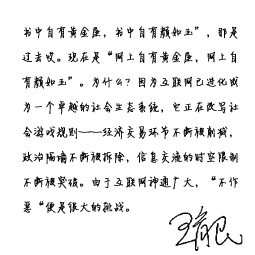 书中自有黄金屋，书中自有颜如玉”，那是
过去哎。现在是“网上自有黄金屋，网上自
有颜如玉”。为什么？因为互联网已进化成
为一个卓越的社会生态系统，它正在改写社
会游戏规则——经济交易环节不断被削减，
政治隔墙不断被拆除，信息交流的时空限制
不断被突破。由于互联网神通广大，“不作
恶“便是很大的挑战。